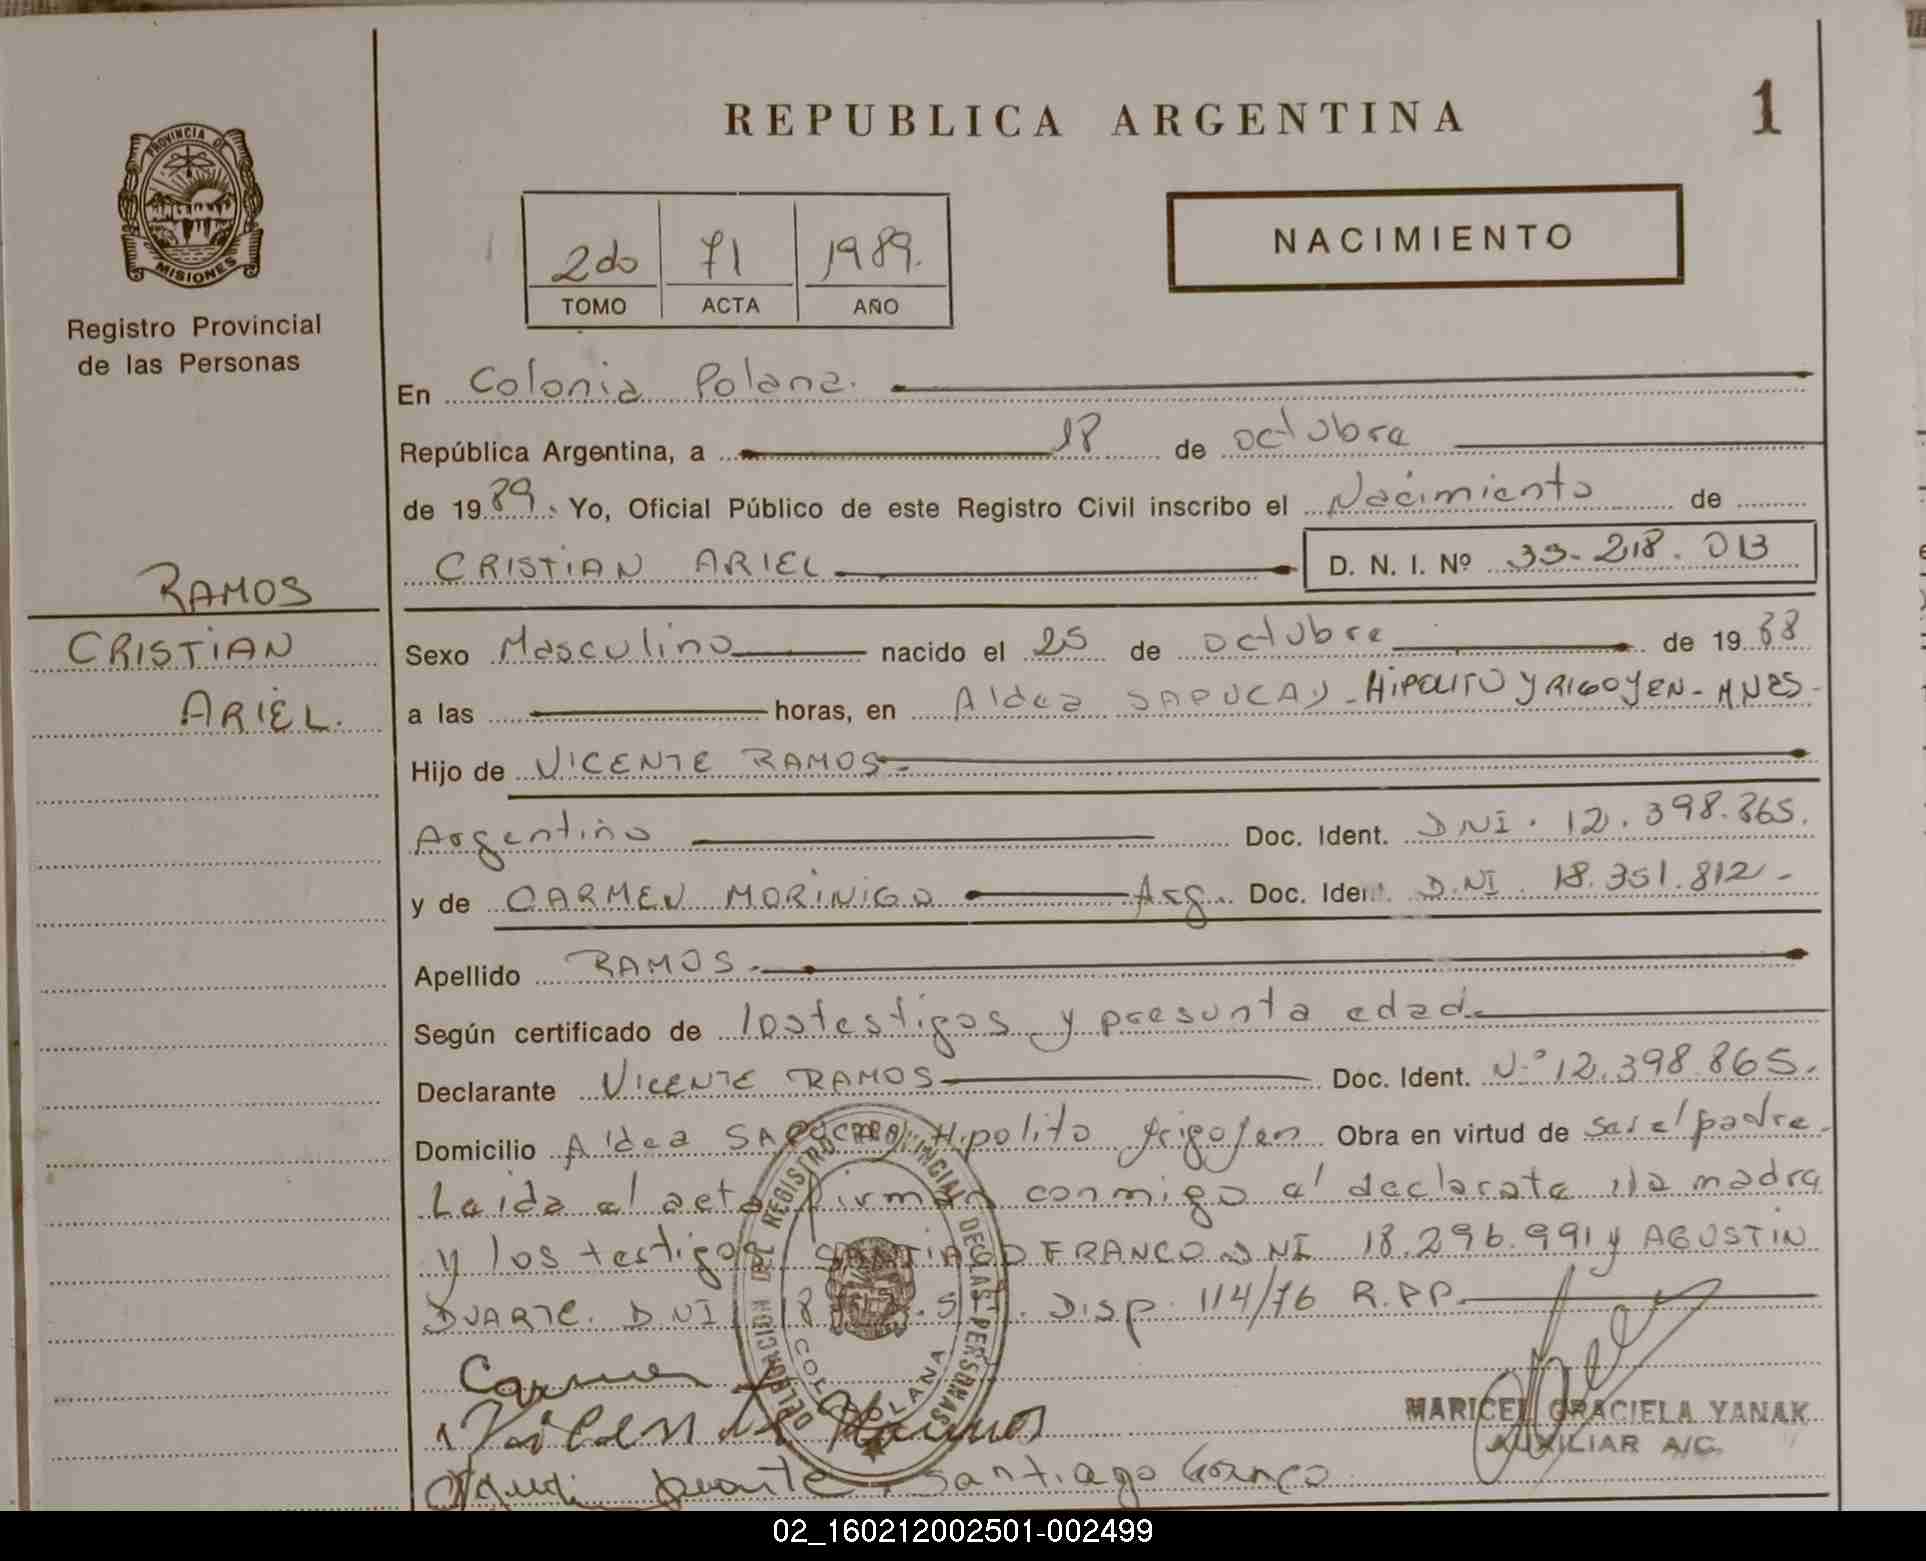 REPUBLICA ARGENTINA
1
PROVINCIA DE
MISIONES
Registro Provincial
de las Personas
2do 71 1989.
TOMO ACTA AÑO
NACIMIENTO
En Colonia Polana.
República Argentina, a 18 de octubre
de 1989. Yo, Oficial Público de este Registro Civil inscribo el Nacimiento de
CRISTIAN ARIEL D. N. I. Nº 218.013
RAMOS
CRISTIAN
ARIEL.
Sexo Masculino nacido el 25 de octubre de 1988
a las horas, en Aldea SAPUCAY - HIPOLITO YRIGOYEN - MNES -
Hijo de VICENTE RAMOS -
Argentino Doc. Ident. DNI. 12.398.865.
y de CARMEN MORINIGO Arg. Doc. Ident. D.NI. 18.351.812 -
Apellido RAMOS -
Según certificado de los testigos y presunta edad.
Declarante VICENTE RAMOS Doc. Ident. N.º 12.398.865.
Domicilio Aldea SAPUCAY Hipolito Yrigoyen Obra en virtud de ser el padre.
Leida el acta firman conmigo el declarate, la madre
y los testigos SANTIAGO FRANCO DNI 18.296.991 y AGUSTIN
DUARTE. DNI 18. Disp. 114/76 R.P.P.
DELEGACION DEL REGISTRO PROVINCIAL DE LAS PERSONAS
COL. POLANA
Carmen
Vicente Ramos
MARICEL GRACIELA YANAK
AUXILIAR A/C.
duarte, Santiago Franco
02_160212002501-002499